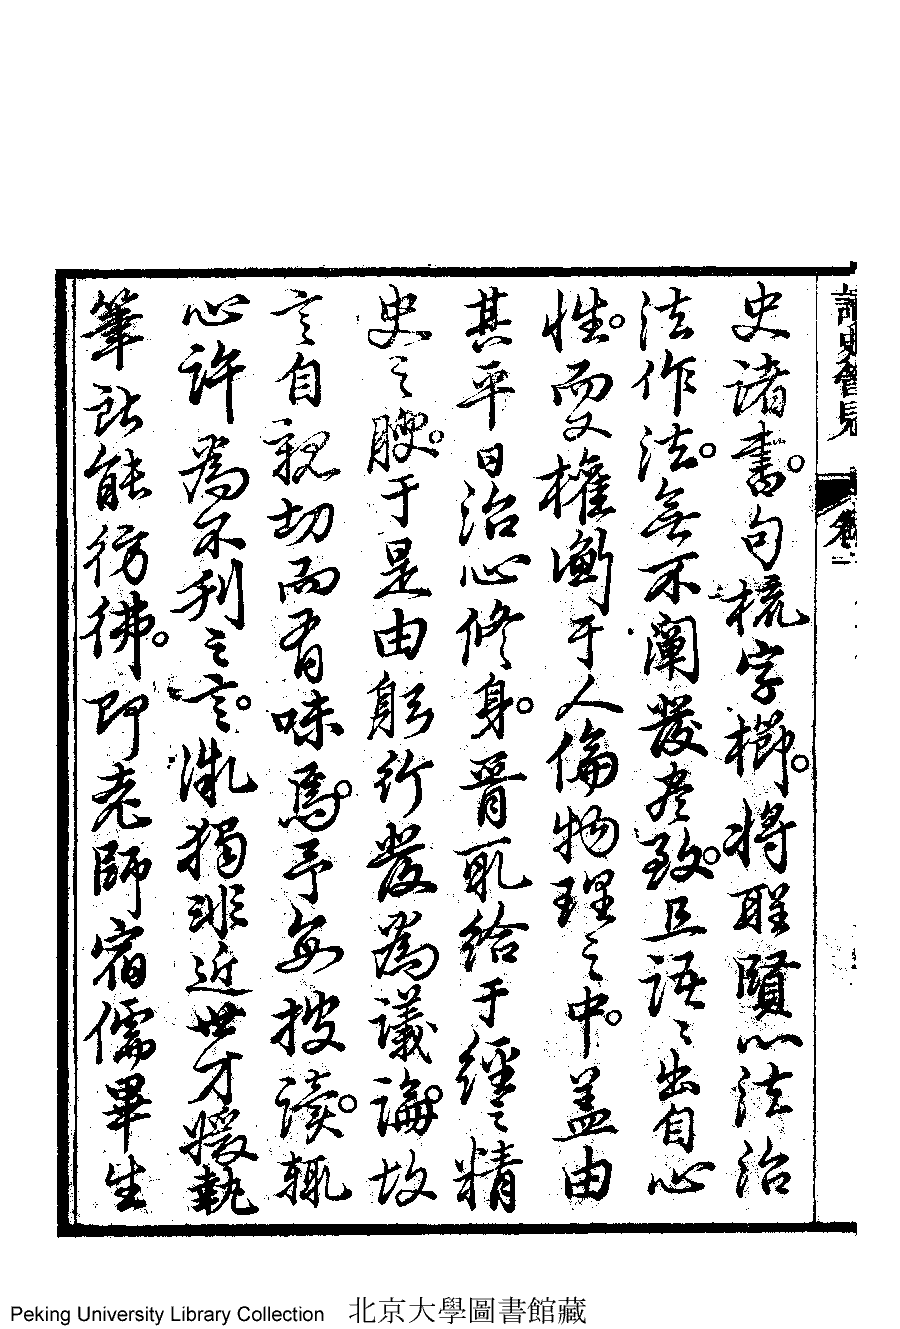 讀史會見 卷二
史諸書句梳字櫛將聖賢心法治
法作法無不闡發盡致且語〻出自心
性而又權衡于人倫物理之中蓋由
其平日治心修身胥取給于經之精
史之腴于是由躬行發為議論故
言自親切而有味焉予每披讀輒
心許為不刊之言渺獨非近世才媛執
筆所能彷彿即老師宿儒畢生
Peking University Library Collection 北京大學圖書館藏